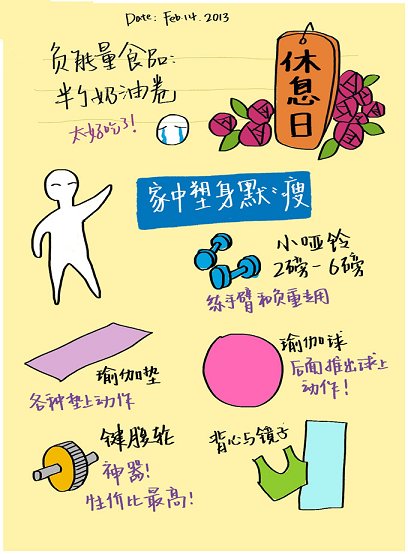 Date: Feb.14.2013
负能量食品:
半个奶油卷
太好吃了!
休息日
家中塑身默默瘦
小哑铃
2磅-6磅
练手臂和负重专用
瑜伽垫
各种垫上动作
瑜伽球
后面推出球上
动作!
健腹轮
神器!
性价比最高!
背心与镜子